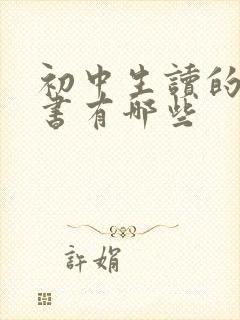 初中生讀的
書有哪些
許娟